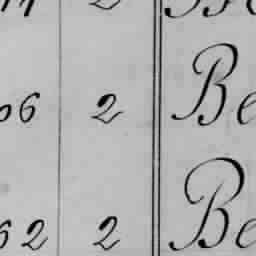 06 2 Be
62 2 Be